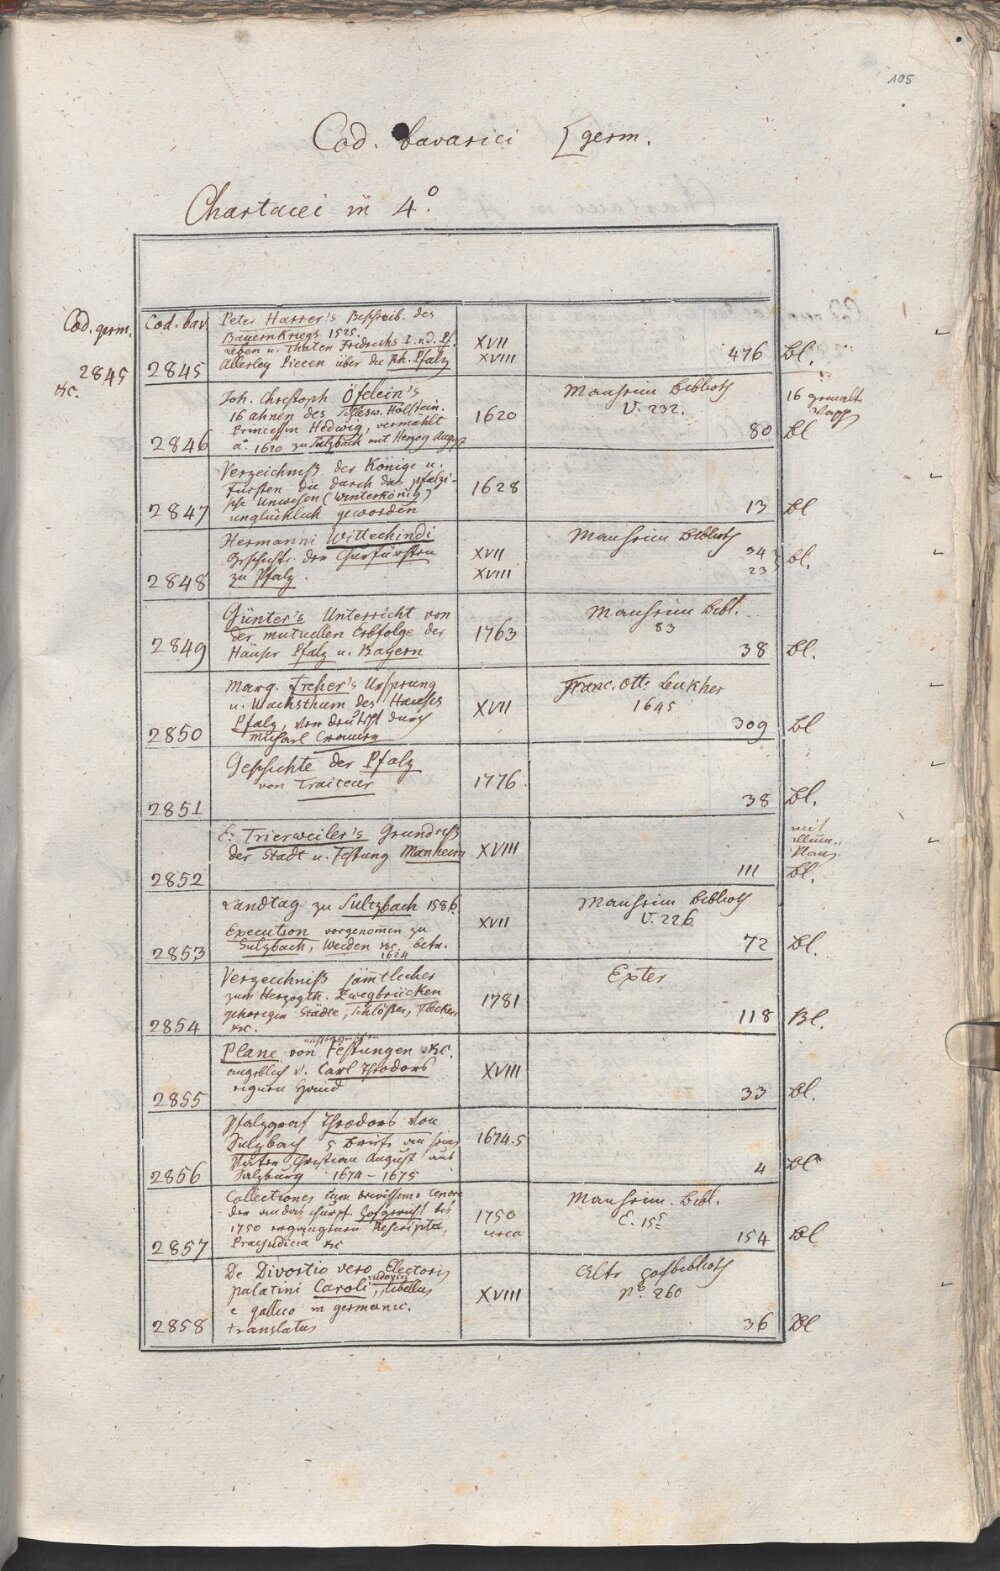 105
Cod. bavarici [germ.
Chartacei in 4°.
Cod. germ.
2845
etc.
Cod. bav.
2845
Peter Harrer's Beschreib. des
Bauernkriegs 1525.
Leben u. Thaten Fridrichs I. u. d. Pf.
Allerley Piecen über die Rh. Pfalz
XVII
XVIII
476 Bl.
2846
Joh. Christoph Öfelein's
16 ahnen des Schlesw. Hollstein.
Princessin Hedwig, vermählt
aº. 1620 zu Sulzbach mit Herzog August
1620
Manheim Biblioth
V. 232.
80 Bl
16 gemalt
Wapp
2847
Verzeichniß der Könige u.
Fürsten die durch das pfälzi-
sche Unwesen (Winterkönig)
unglücklich geworden
1628
13 Bl
2848
Hermanni Wittechindi
Geschicht. der Churfürsten
zu Pfalz.
XVII
XVIII
Manheim Biblioth
34
23 Bl.
2849
Günter's Unterricht von
der mutuellen Erbfolge der
Häuser Pfalz u. Bayern
1763
Manheim Bibl.
83
38 Bl.
2850
Marq. Freher's Ursprung
u. Wachsthum des Hauses
Pfalz, verdeutscht durch
Michael
XVII
Franc. Ott. Leukher
1645
309 Bl
2851
Geschichte der Pfalz
von Traiteur
1776
38 Bl.
2852
E. Trierweiler's Grundriß
der Stadt u. Festung Manheim
XVIII
111 Bl.
mit
illum.
Plan
2853
Landtag zu Sulzbach 1586.
Execution vorgenom̅en zu
Sulzbach, Weiden etc. betr.
1624
XVII
Manheim Biblioth
V. 226
72 Bl.
2854
Verzeichniß sämtlicher
zum Herzogth. Zweybrücken
gehörigen Städte, Schlößer, Flecken
etc.
1781
Exter
118 Bl.
2855
Plane von Festungen etc.
angeblich v. Carl Theodors
eigner Hand
XVIII
33 Bl.
2856
Pfalzgraf Theodors von
Sulzbach 5 Briefe an seinen
Vater Christian August aus
Salzburg 1674 - 1675
1674.5
4 Bl
2857
Collectiones cum brevissimo tenore
der an das churpf. Hofgericht bis
1750 ergangenen Rescripta,
Praejudicia etc
1750
circa
Manheim. Bibl.
E. 15
154 Bl
2858
De Divortio vero Electoris
palatini Caroli Ludovici, libellus
e gallico in germanic.
translatus
XVIII
Alte Hofbiblioth
Nº 260
36 Bl